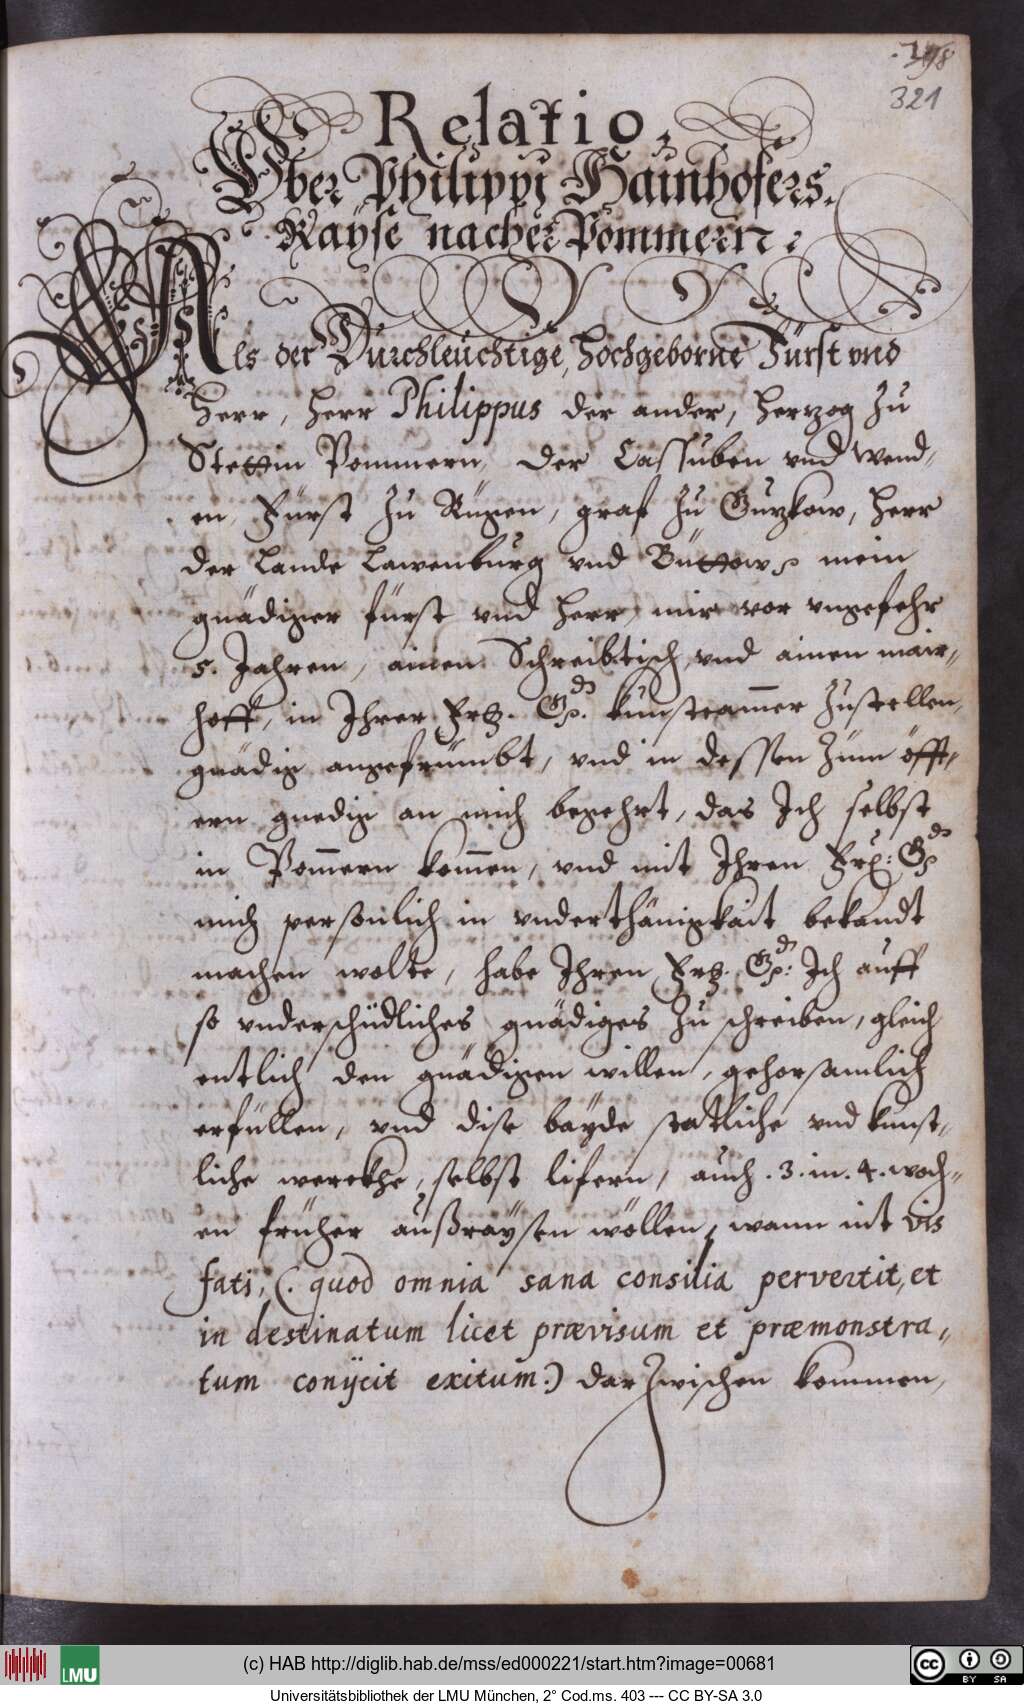 321
Relatio.
Vber Philippi Hainhofers.
Rayse nacher Pommern.
Als der Durchleuchtige, hochgeborne Fürst vnd
herr, herr Philippus der ander, hertzog zu
Stettin Pommern, der Cassuben vnd Wend-
en, Fürst zu Rügen, graf zu Gutzkow, herr
der Lande Lawenburg vnd Büttow mein
gnädiger fürst vnd herr, mir vor vngefehr
5. Jahren, ainen Schreibtisch, vnd ainen mair-
hoff, in Ihrer Frl. Gn. kunstcam̄er zustellen,
gnädig angefrümbt, vnd in dessen zum öfft-
ern gnedig an mich begehrt, das Ich selbst
in Pom̄ern kom̄en, vnd mit Ihren Frl: Gn
mich persönlich in vnderthänigkait bekandt
machen wolte, habe Ihren Frl. Gn: Ich auff
so vnderschüdliches gnädiges zu schreiben, gleich
entlich den gnädigen willen, gehorsamlich
erfüllen, vnd dise bayde statliche vnd kunst-
liche werckhe, selbst lifern, auch .3. in .4. woch-
en früher außraysen wöllen, wann nit vis
fati, (. quod omnia sana consilia pervertit, et
in destinatum licet prævisum et præmonstra-
tum conijcit exitum:) darzwischen kommen,
LMU
(c) HAB http://diglib.hab.de/mss/ed000221/start.htm?image=00681
cc BY SA
Universitätsbibliothek der LMU München, 2° Cod.ms. 403 --- CC BY-SA 3.0